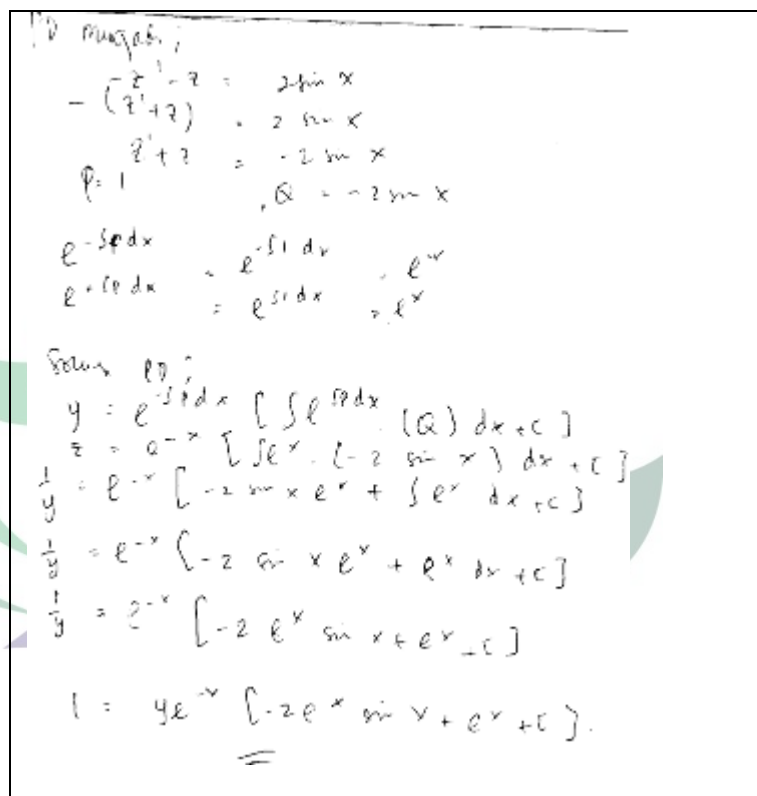 PD menjadi ;
-z' - z = 2 sin x
- (z' + z) = 2 sin x
z' + z = -2 sin x
P = 1 , Q = -2 sin x
e^{-∫p dx} = e^{-∫1 dx} = e^{-x}
e^{+∫p dx} = e^{∫1 dx} = e^x
Solusi PD ;
y = e^{-∫p dx} [ ∫e^{∫p dx} (Q) dx + C ]
z = e^{-x} [ ∫e^x . (-2 sin x) dx + C ]
1/y = e^{-x} [ -2 sin x e^x + ∫e^x dx + C ]
1/y = e^{-x} [ -2 sin x e^x + e^x dx + C ]
1/y = e^{-x} [ -2 e^x sin x + e^x + C ]
1 = ye^{-x} [ -2e^x sin x + e^x + C ].